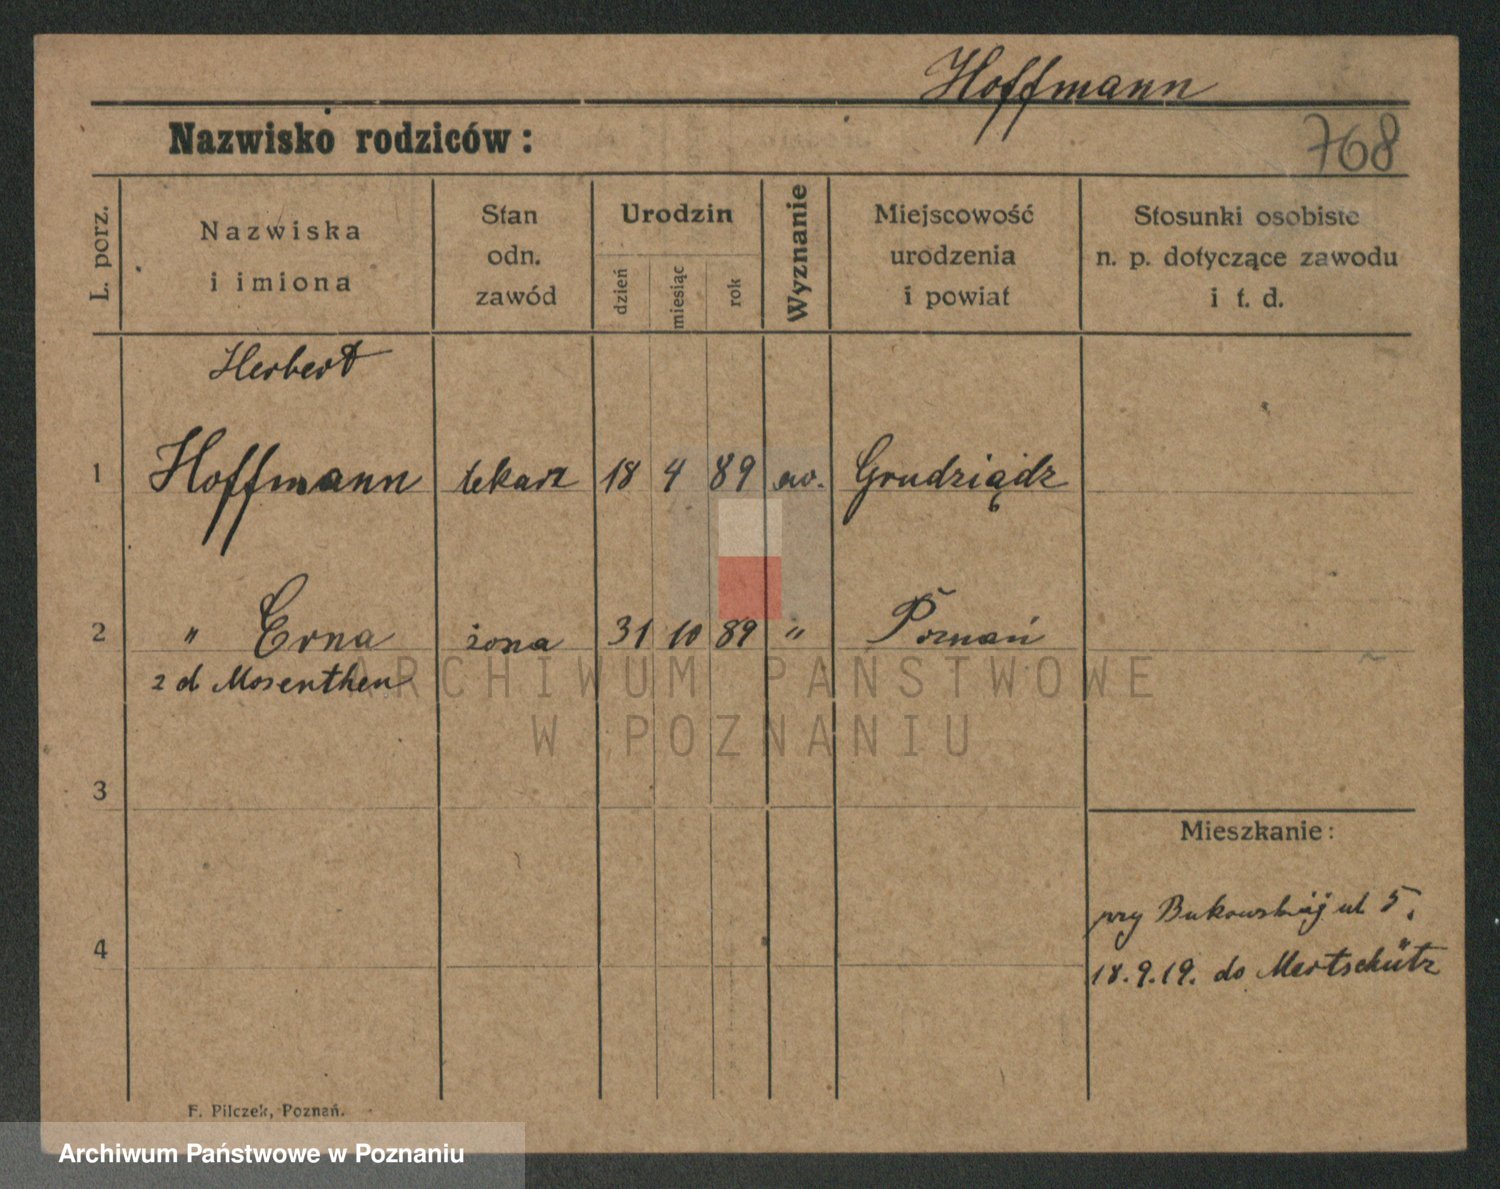 Hoffmann
Nazwisko rodziców:
768
L. porz.
Nazwiska
i imiona
Stan
odn.
zawód
Urodzin
dzień
miesiąc
rok
Wyznanie
Miejscowość
urodzenia
i powiat
Stosunki osobiste
n. p. dotyczące zawodu
i t. d.
Herbert
1 Hoffmann lekarz 18 4 89 ew. Grudziądz
2 " Erna żona 31 10 89 " Poznań
z d Mosenthen
ARCHIWUM PAŃSTWOWE
W POZNANIU
3
Mieszkanie:
przy Bukowskiej ul 5,
4
18.9.19. do Mertschütz
F. Pilczek, Poznań.
Archiwum Państwowe w Poznaniu